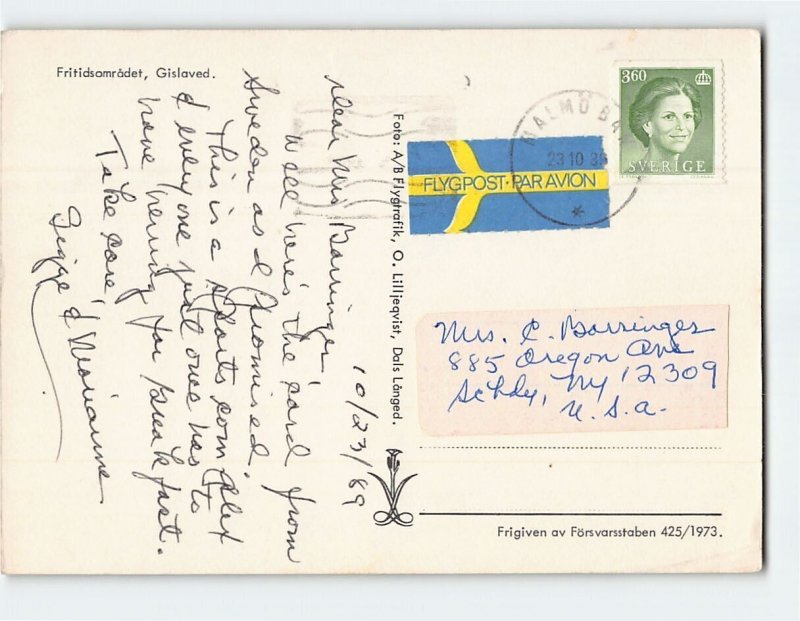 Fritidsområdet, Gislaved.
10/23/89
Dear Mrs Barringer,
Well here's the card from
Sweden as I promised.
This is a sports complex
& everyone just once has to
have herring for breakfast.
Take care,
Bigge & Marianne
Foto: A/B Flygtrafik, O. Lilljeqvist, Dals Långed.
FLYGPOST·PAR AVION
MALMÖ BA
23 10 8
360
SVERIGE
Mrs. C. Barringer
885 Oregon Ave
Schdy, Ny 12309
U.S.a.
Frigiven av Försvarsstaben 425/1973.